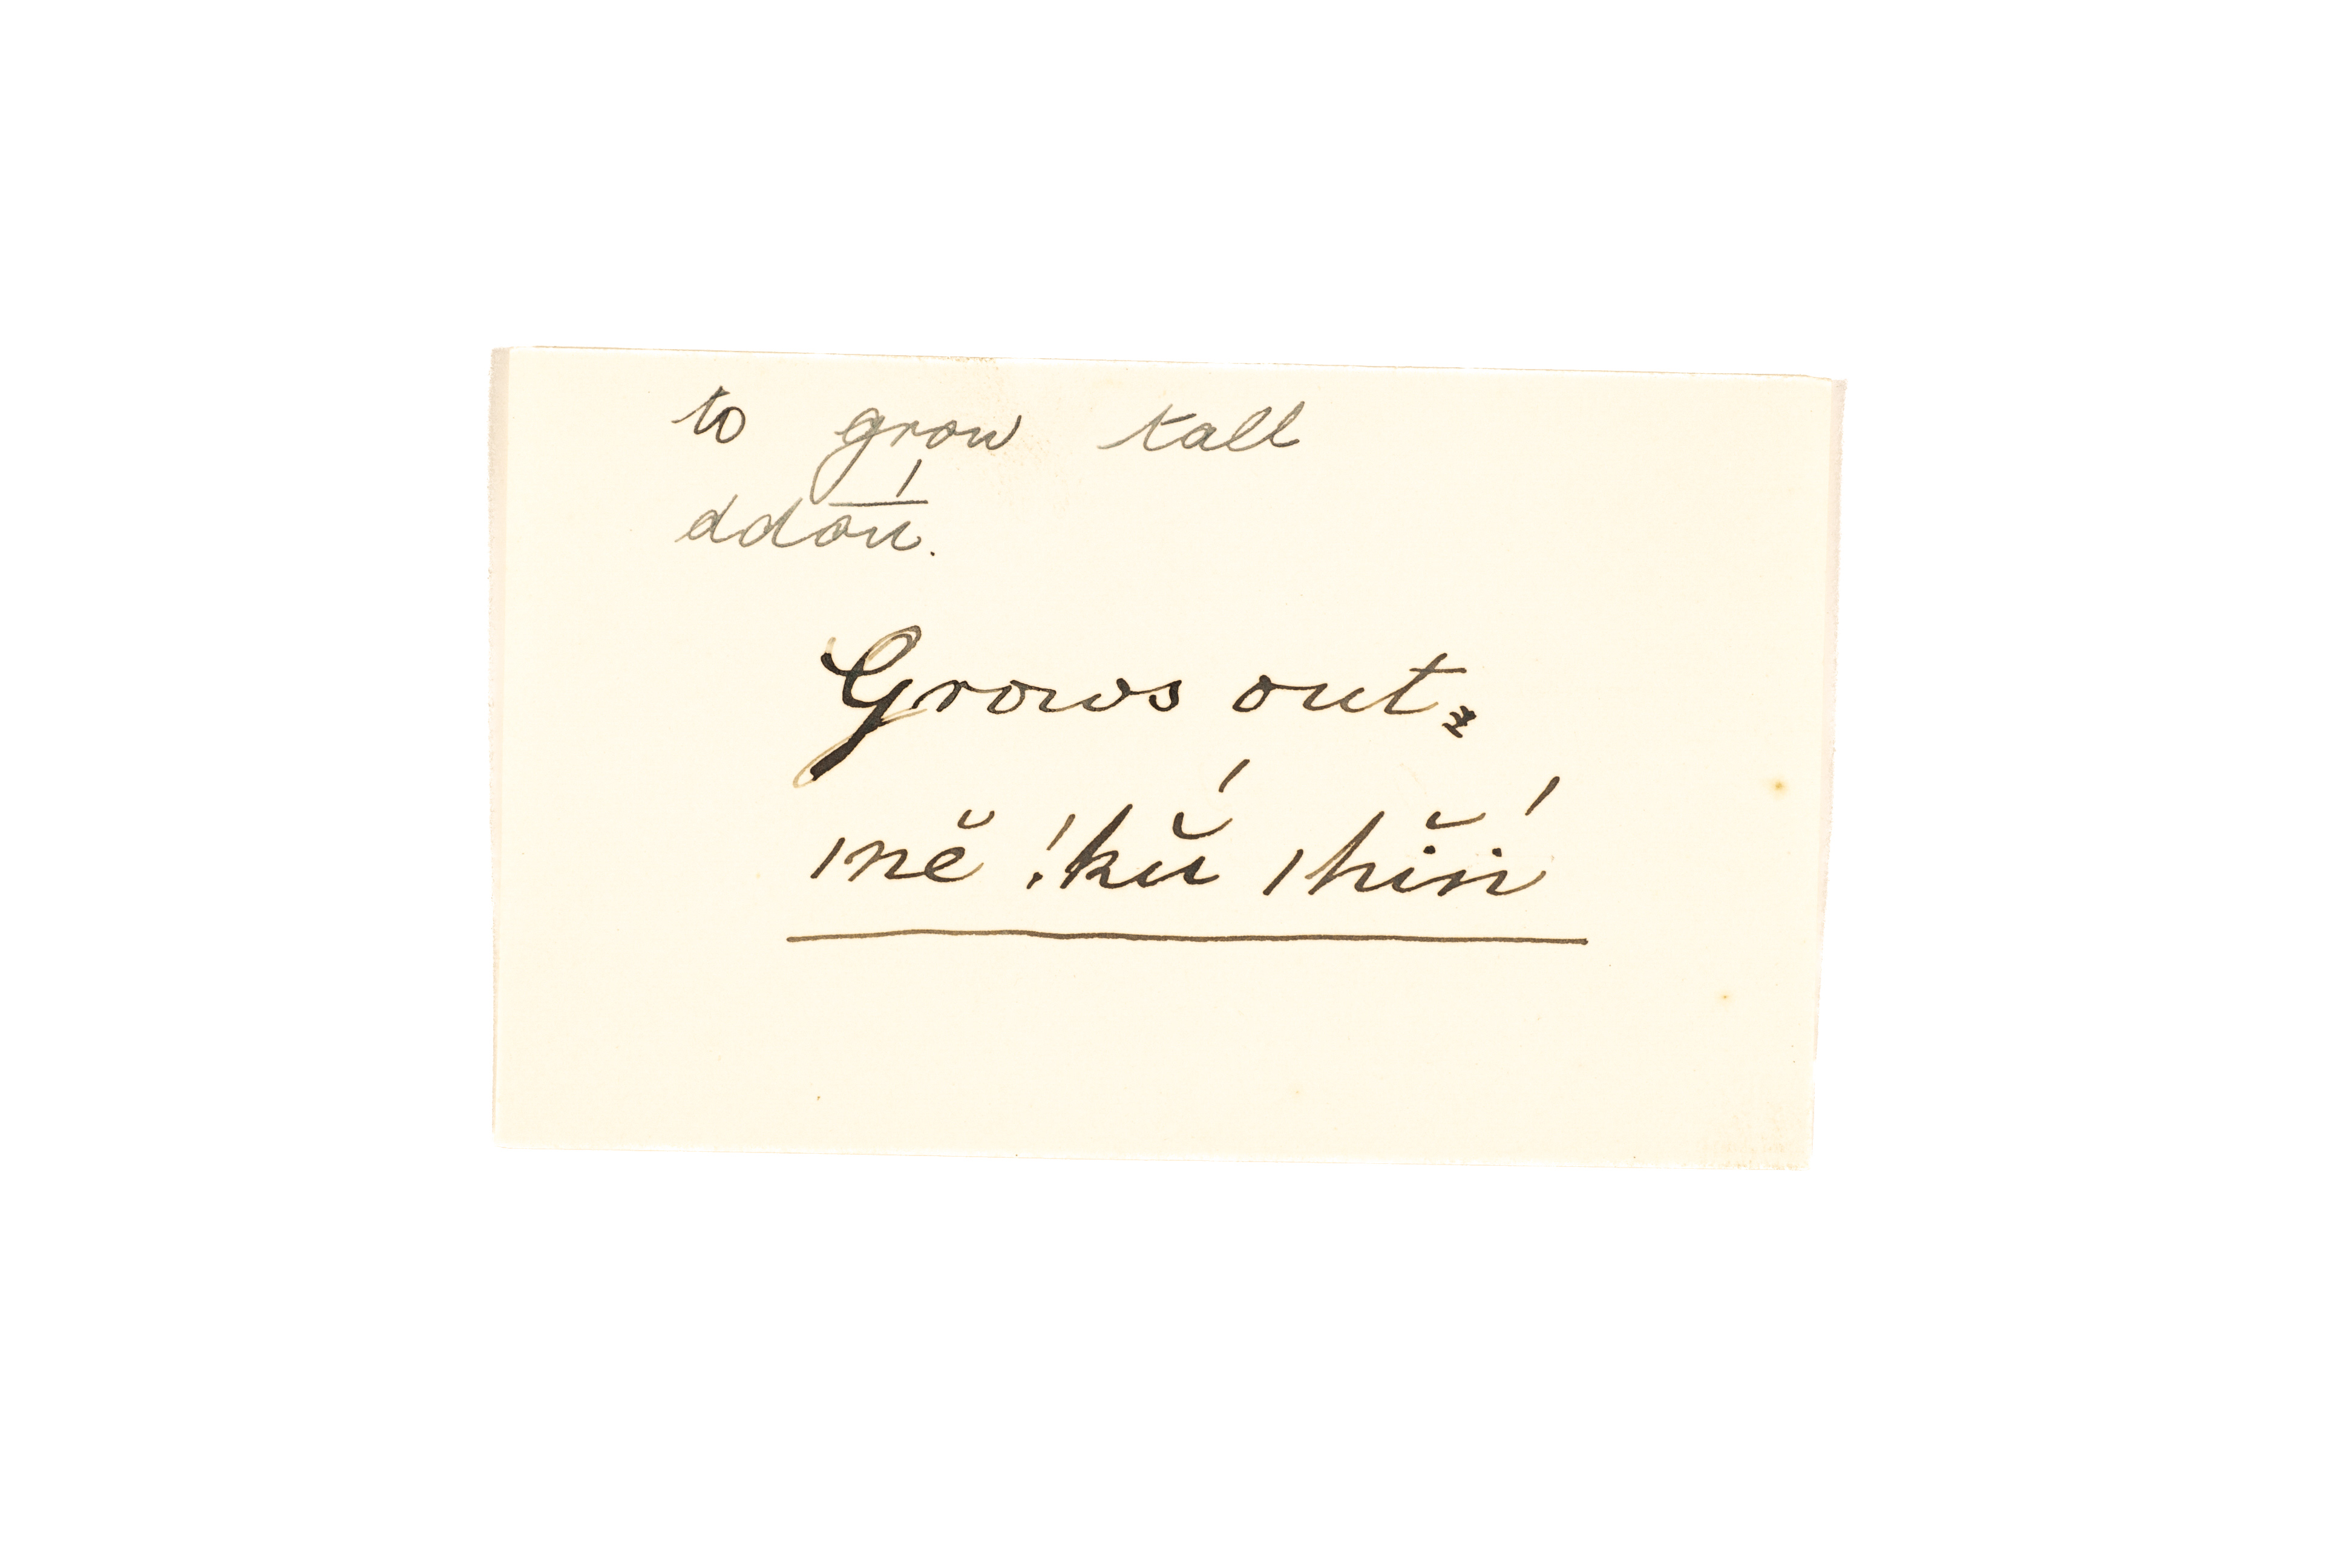 to grow tall
ddo͞ú.
Grows out.
|nĕ !kŭ́ |hĭń